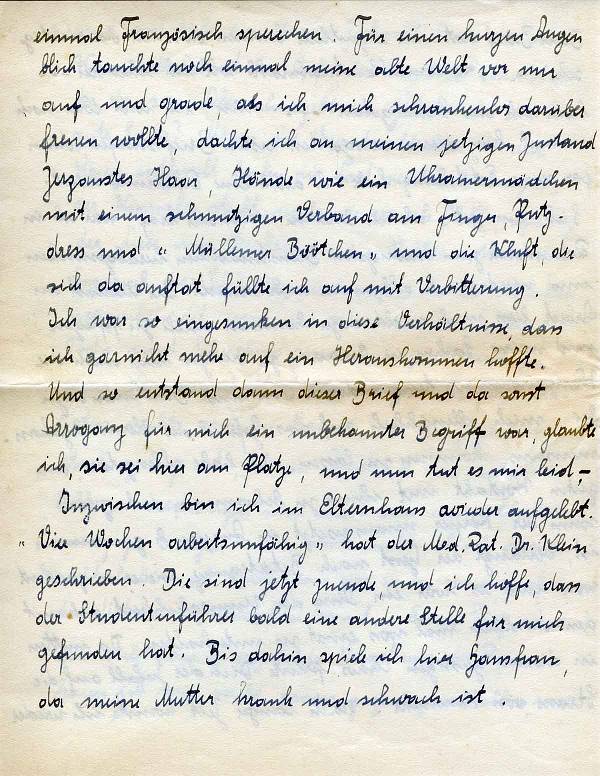 einmal Französisch sperechen. Für einen kurzen Augen
blich tauchte noch einmal meine alte Welt vor mir
auf und grade, als ich mich schrankenlos darüber
freuen wollte, dachte ich an meinen jetzigen Zustand
Zerzaustes Haar, Hände wie ein Ukramermädchen
mit einem schmutzigen Verband am Finger, Putz-
dress und " Müllemer Böötchen " und die Kluft, die
sich da auftat füllte ich auf mit Verbitterung.
Ich war so eingesunken in diese Verhältnisse, dass
ich garnicht mehr auf ein Herauskommen hoffte.
Und so entstand dann dieser Brief und da sonst
Arroganz für mich ein unbekannter Begriff war, glaubte
ich, sie sei hier am Platze, und nun tut es mir leid,-
Inzwischen bin ich im Elternhaus wieder aufgelebt.
" Vier Wochen arbeitsunfähig " hat der Med. Rat. Dr. Klein
geschrieben. Die sind jetzt zuende, und ich hoffe, dass
der Studentenführer bald eine andere Stelle für mich
gefunden hat. Bis dahin spiele ich hier Hausfrau,
da meine Mutter krank und schwach ist.